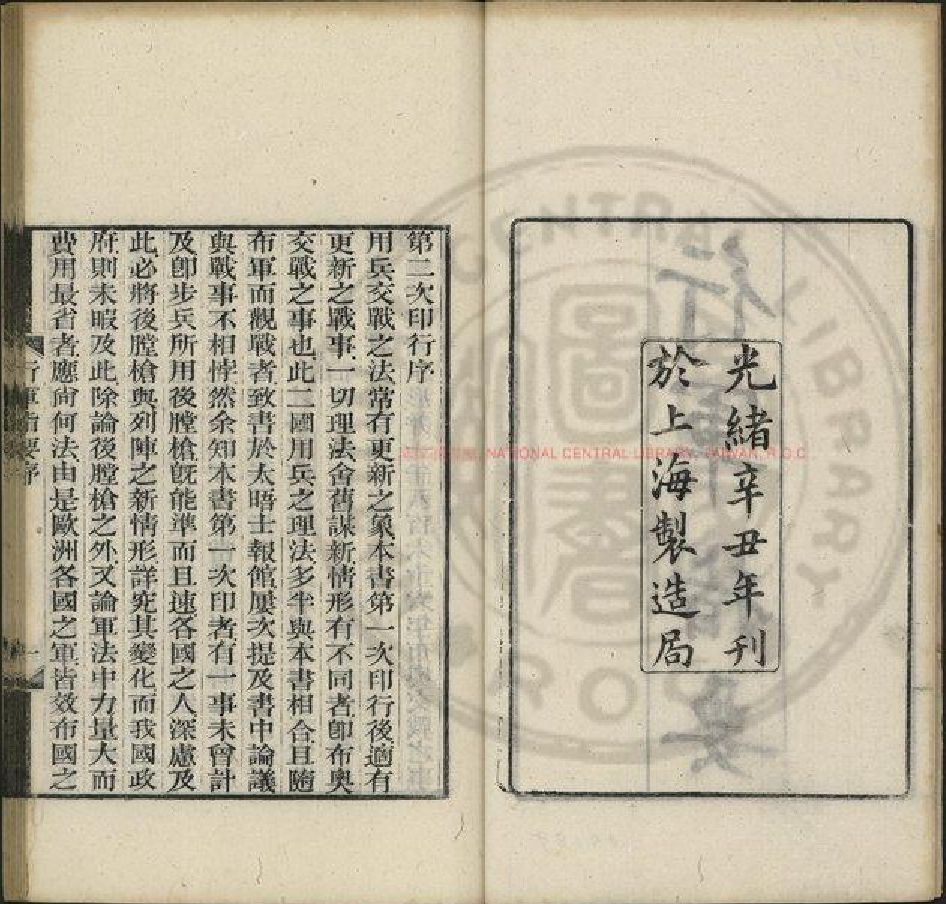 光緒辛丑年刊
於上海製造局
第二次印行序
用兵交戰之法常有更新之象本書第一次印行後適有
更新之戰事一切理法舍舊謀新情形有不同者卽布奧
交戰之事也此二國用兵之理法多半與本書相合且隨
布軍而觀戰者致書於太晤士報館屢次提及書中論議
與戰事不相悖然余知本書第一次印者有一事未曾計
及卽步兵所用後膛槍旣能準而且速各國之人深慮及
此必將後膛槍與列陣之新情形詳究其變化而我國政
府則未暇及此除論後膛槍之外又論軍法中力量大而
費用最省者應尙何法由是歐洲各國之軍皆效布國之
行軍指要序
一
NATIONAL CENTRAL LIBRARY, TAIWAN, R.O.C